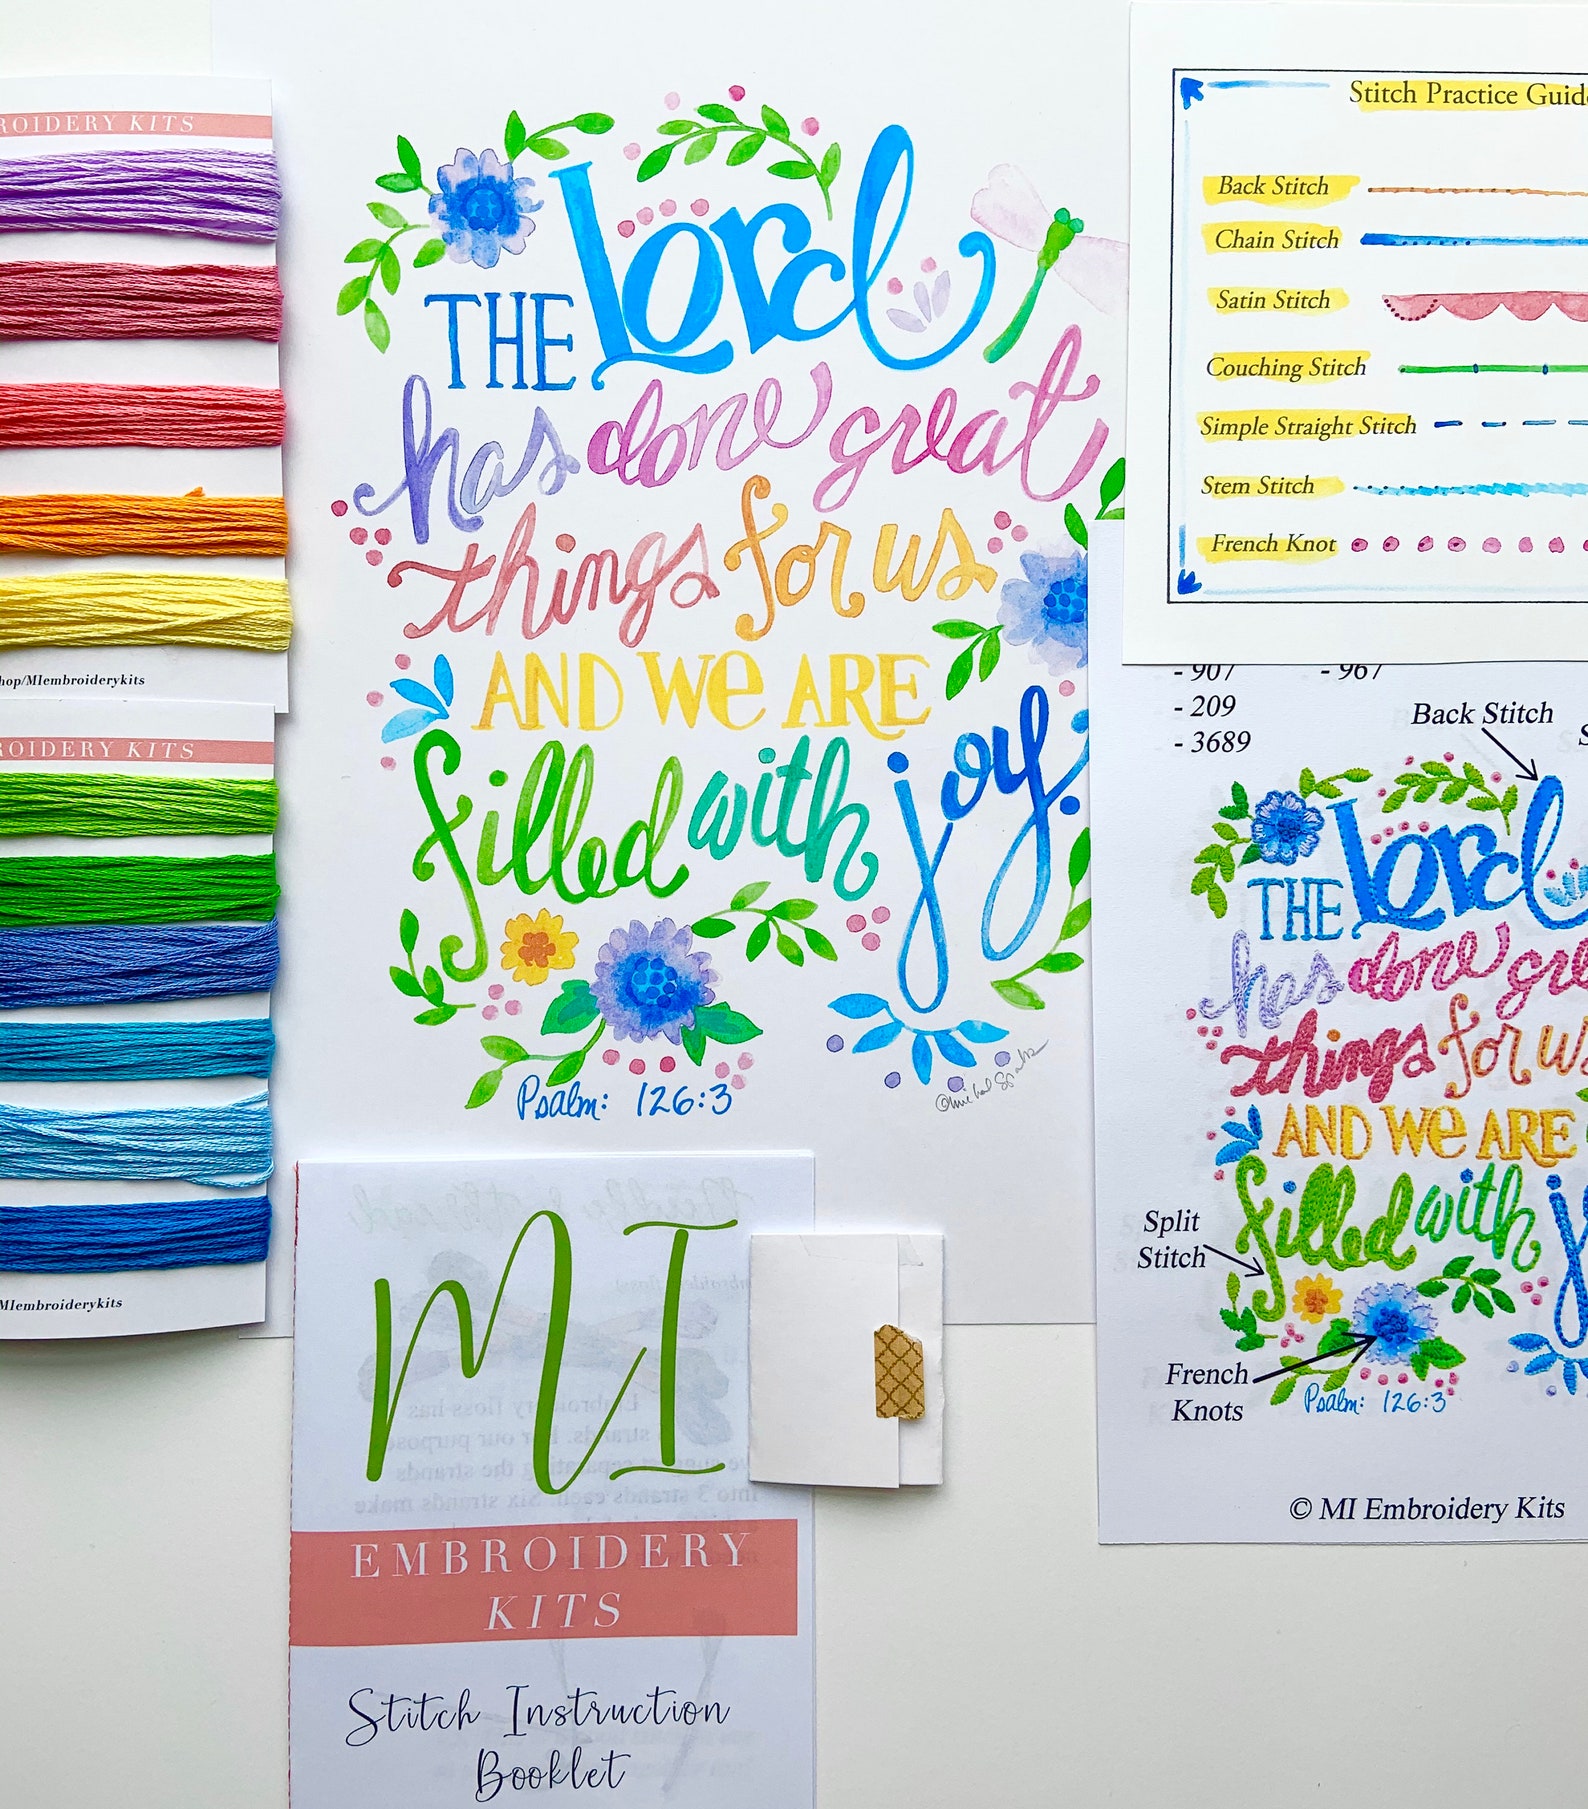 ROIDERY KITS
hop/MIembroiderykits
ROIDERY KITS
MIembroiderykits
THE Lord
has done great
things for us
AND We ARE
filled with joy.
Psalm: 126:3
Stitch Practice Guide
Back Stitch
Chain Stitch
Satin Stitch
Couching Stitch
Simple Straight Stitch
Stem Stitch
French Knot
- 907 - 967
- 209
- 3689
Back Stitch
THE Lord
has done gre
things for us
AND We ARE
filled with j
Split
Stitch
French
Knots
Psalm: 126:3
© MI Embroidery Kits
MI
EMBROIDERY
KITS
Stitch Instruction
Booklet